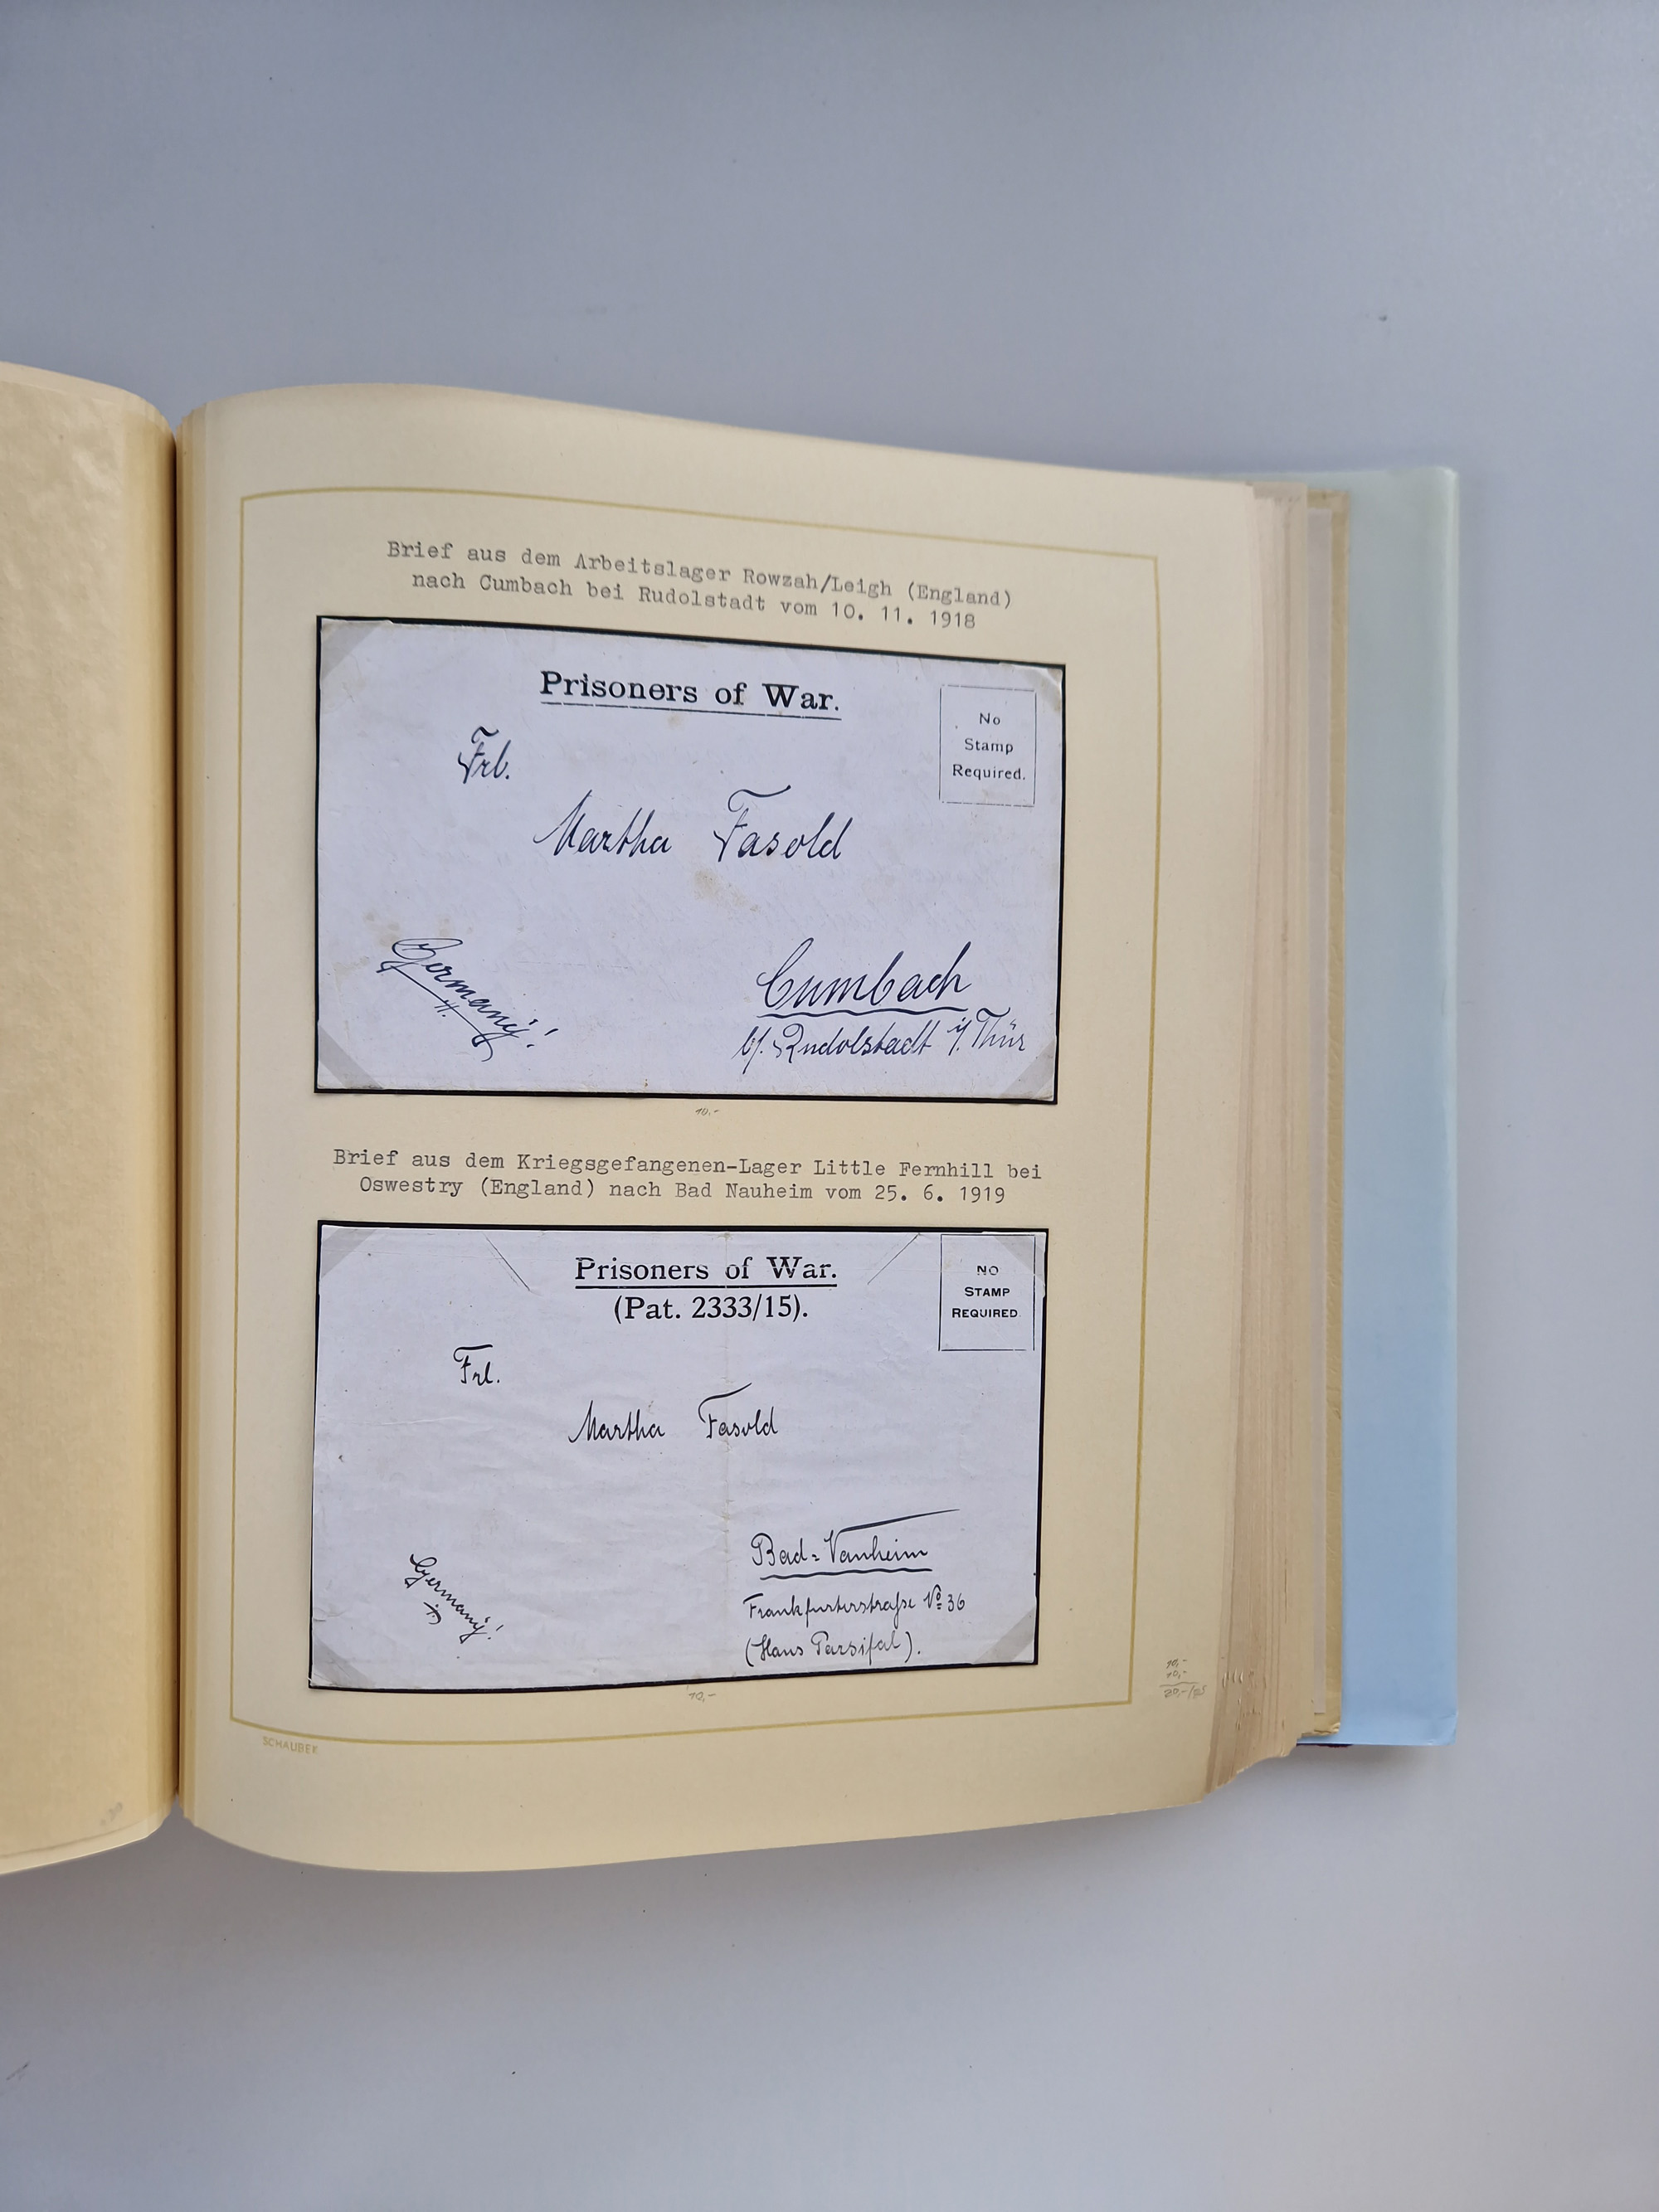 Brief aus dem Arbeitslager Rowzah/Leigh (England)
nach Cumbach bei Rudolstadt vom 10. 11. 1918
Prisoners of War.
No
Stamp
Required.
Frl.
Martha Fasold
Germany!
Cumbach
b/. Rudolstadt i/. Thür
10,-
Brief aus dem Kriegsgefangenen-Lager Little Fernhill bei
Oswestry (England) nach Bad Nauheim vom 25. 6. 1919
Prisoners of War.
(Pat. 2333/15).
NO
STAMP
REQUIRED.
Frl.
Martha Fasold
Germany!
Bad=Nauheim
Frankfurterstraße No 36
(Haus Parsifal).
10,-
10,-
10,-
SCHAUBEK